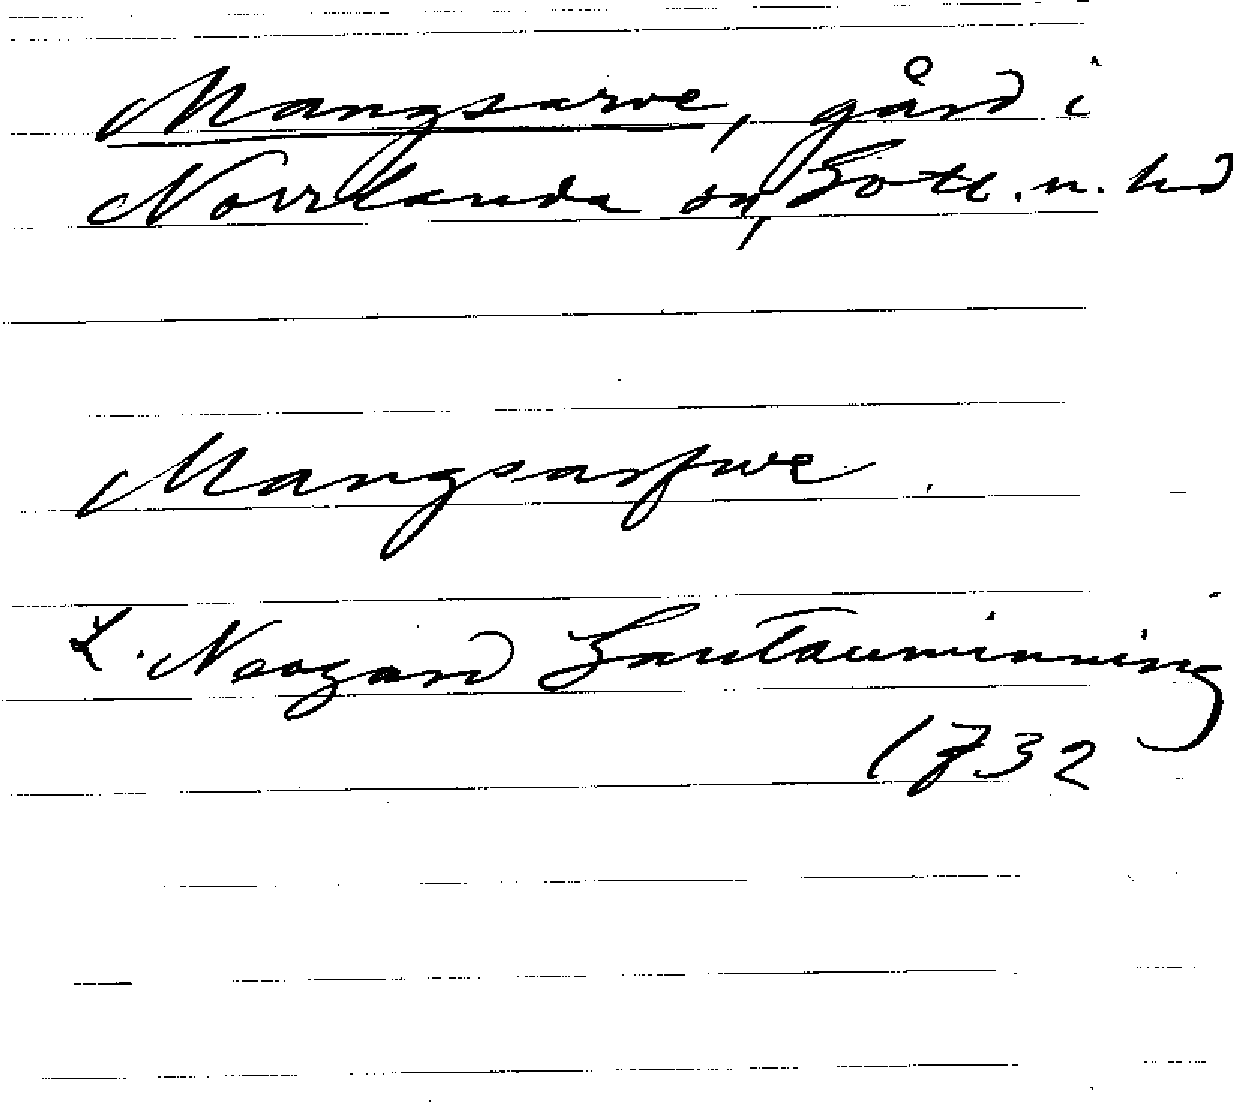 Mangsarve, gård i
Norrlanda sn, Gotl. n. hd
Mangsarfwe.
L. Neogard Gautauminning
1732